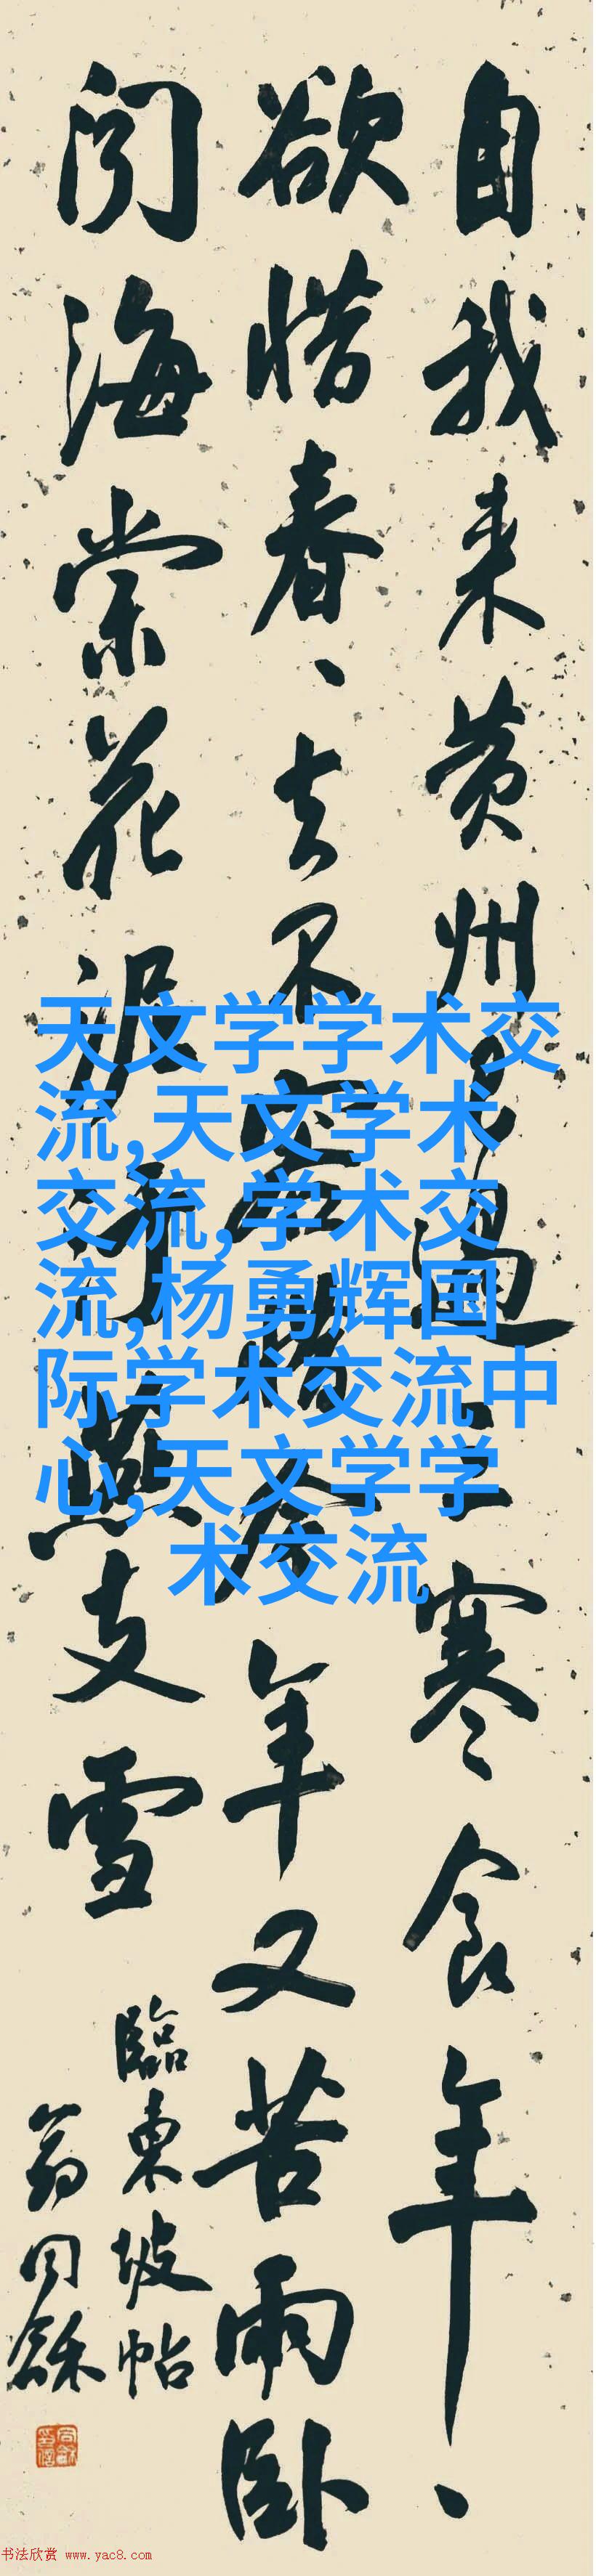 自我来黄州已過三寒食年、
欲惜春、去不容惜今年又苦雨卧
闻海棠花泥污燕支雪
臨東坡帖
翁同龢
天文学学术交
流,天文学术
交流,学术交
流,杨勇辉国
际学术交流中
心,天文学学
术交流
书法欣赏 www.yac8.com